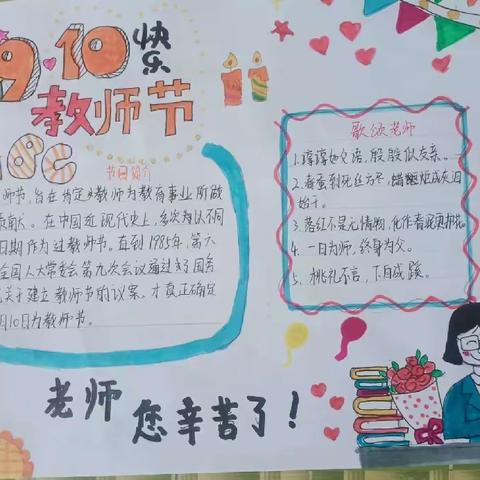 9.10快乐
教师节
ABC
节日简介
师节，旨在肯定教师为教育事业所做
贡献。在中国近现代史上，多次以不同
日期作为过教师节。直到1985年，第六
全国人大常委会第九次会议通过了国务
关于建立教师节的议案，才真正确定
月10日为教师节。
歌颂老师
1.谆谆如父语，殷殷似友亲。
2.春蚕到死丝方尽，蜡炬成灰泪
始干。
3.落红不是无情物，化作春泥更护花。
4.一日为师，终身为父。
5.桃李不言，下自成蹊。
老师
您辛苦了！